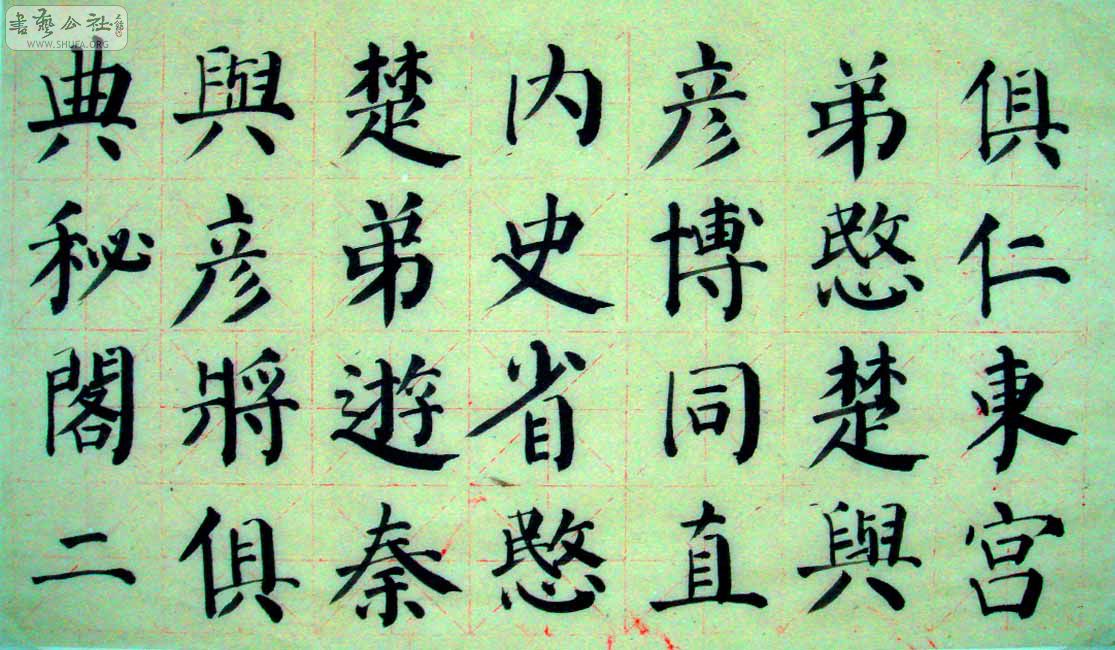 書藝公社
WWW.SHUFA.ORG
俱仁東宫
弟愍楚與
彦博同直
内史省愍
楚弟遊秦
與彦將俱
典秘閣二